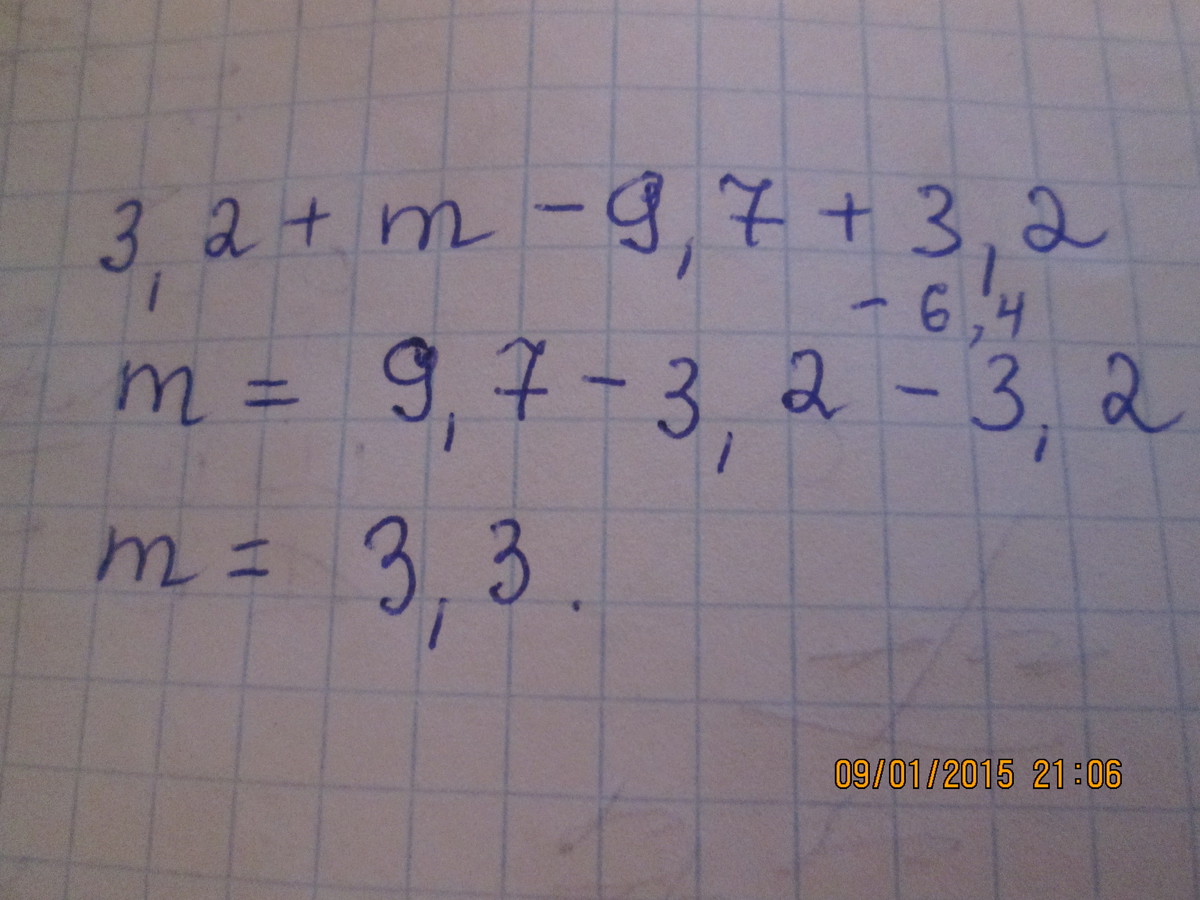 3,2 + m - 9,7 + 3,2
- 6,4
m = 9,7 - 3,2 - 3,2
m = 3,3.
09/01/2015 21:06